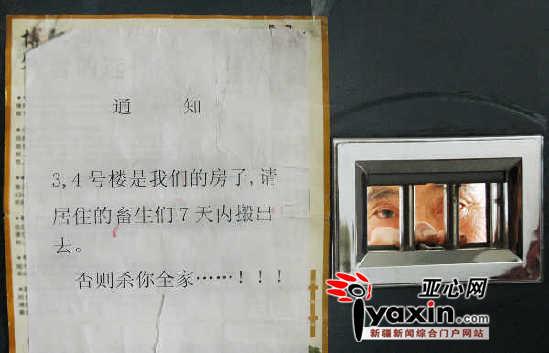 通 知
3,4号楼是我们的房了,请
居住的畜生们7天内搬出
去。
否则杀你全家……!!!
亚心网
iyaxin.com
新疆新闻综合门户网站